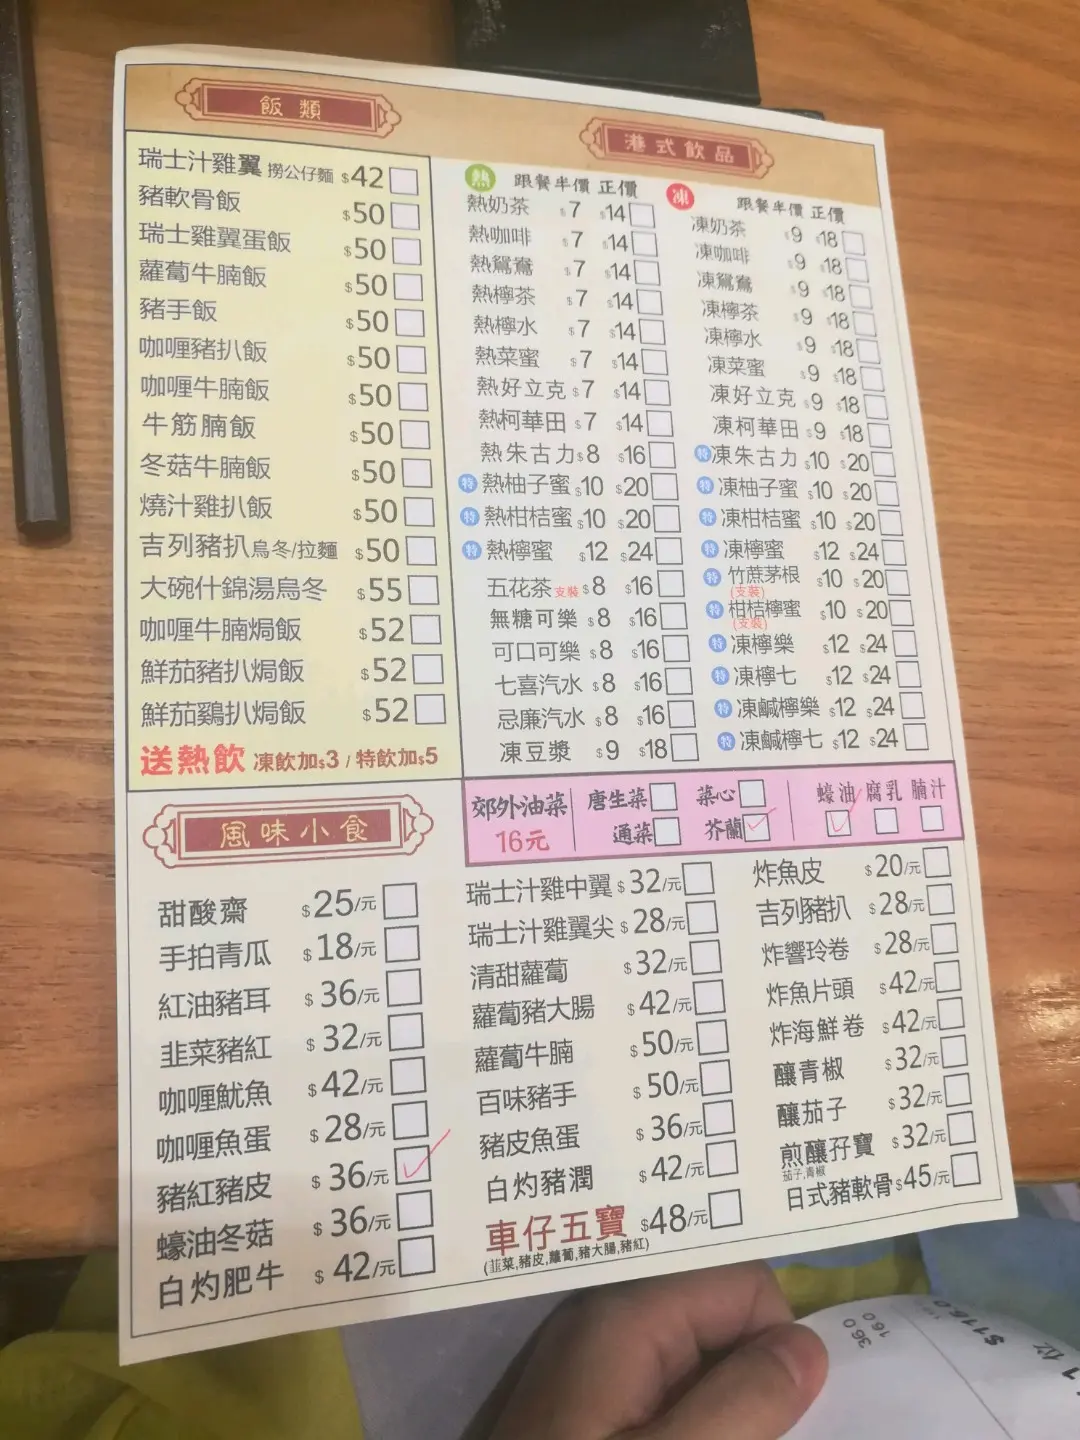 飯類
瑞士汁雞翼 撈公仔麵 $42
豬軟骨飯 $50
瑞士雞翼蛋飯 $50
蘿蔔牛腩飯 $50
豬手飯 $50
咖喱豬扒飯 $50
咖喱牛腩飯 $50
牛筋腩飯 $50
冬菇牛腩飯 $50
燒汁雞扒飯 $50
吉列豬扒烏冬/拉麵 $50
大碗什錦湯烏冬 $55
咖喱牛腩焗飯 $52
鮮茄豬扒焗飯 $52
鮮茄鷄扒焗飯 $52
送熱飲 凍飲加$3 / 特飲加$5
港式飲品
熱 跟餐半價 正價
熱奶茶 $7 $14
熱咖啡 $7 $14
熱鴛鴦 $7 $14
熱檸茶 $7 $14
熱檸水 $7 $14
熱菜蜜 $7 $14
熱好立克 $7 $14
熱柯華田 $7 $14
熱朱古力 $8 $16
特 熱柚子蜜 $10 $20
特 熱柑桔蜜 $10 $20
特 熱檸蜜 $12 $24
五花茶 支裝 $8 $16
無糖可樂 $8 $16
可口可樂 $8 $16
七喜汽水 $8 $16
忌廉汽水 $8 $16
凍豆漿 $9 $18
凍 跟餐半價 正價
凍奶茶 $9 $18
凍咖啡 $9 $18
凍鴛鴦 $9 $18
凍檸茶 $9 $18
凍檸水 $9 $18
凍菜蜜 $9 $18
凍好立克 $9 $18
凍柯華田 $9 $18
特 凍朱古力 $10 $20
特 凍柚子蜜 $10 $20
特 凍柑桔蜜 $10 $20
特 凍檸蜜 $12 $24
特 竹蔗茅根 $10 $20
(支裝)
特 柑桔檸蜜 $10 $20
(支裝)
特 凍檸樂 $12 $24
特 凍檸七 $12 $24
特 凍鹹檸樂 $12 $24
特 凍鹹檸七 $12 $24
郊外油菜 唐生菜 菜心 蠔油 腐乳 腩汁
16元 通菜 芥蘭
風味小食
甜酸齋 $25/元
手拍青瓜 $18/元
紅油豬耳 $36/元
韭菜豬紅 $32/元
咖喱魷魚 $42/元
咖喱魚蛋 $28/元
豬紅豬皮 $36/元
蠔油冬菇 $36/元
白灼肥牛 $42/元
瑞士汁雞中翼 $32/元
瑞士汁雞翼尖 $28/元
清甜蘿蔔 $32/元
蘿蔔豬大腸 $42/元
蘿蔔牛腩 $50/元
百味豬手 $50/元
豬皮魚蛋 $36/元
白灼豬潤 $42/元
車仔五寶 $48/元
(韮菜,豬皮,蘿蔔,豬大腸,豬紅)
炸魚皮 $20/元
吉列豬扒 $28/元
炸響玲卷 $28/元
炸魚片頭 $42/元
炸海鮮卷 $42/元
釀青椒 $32/元
釀茄子 $32/元
煎釀孖寶 $32/元
茄子,青椒
日式豬軟骨 $45/元
36.0
16.0
$116.0
1 位